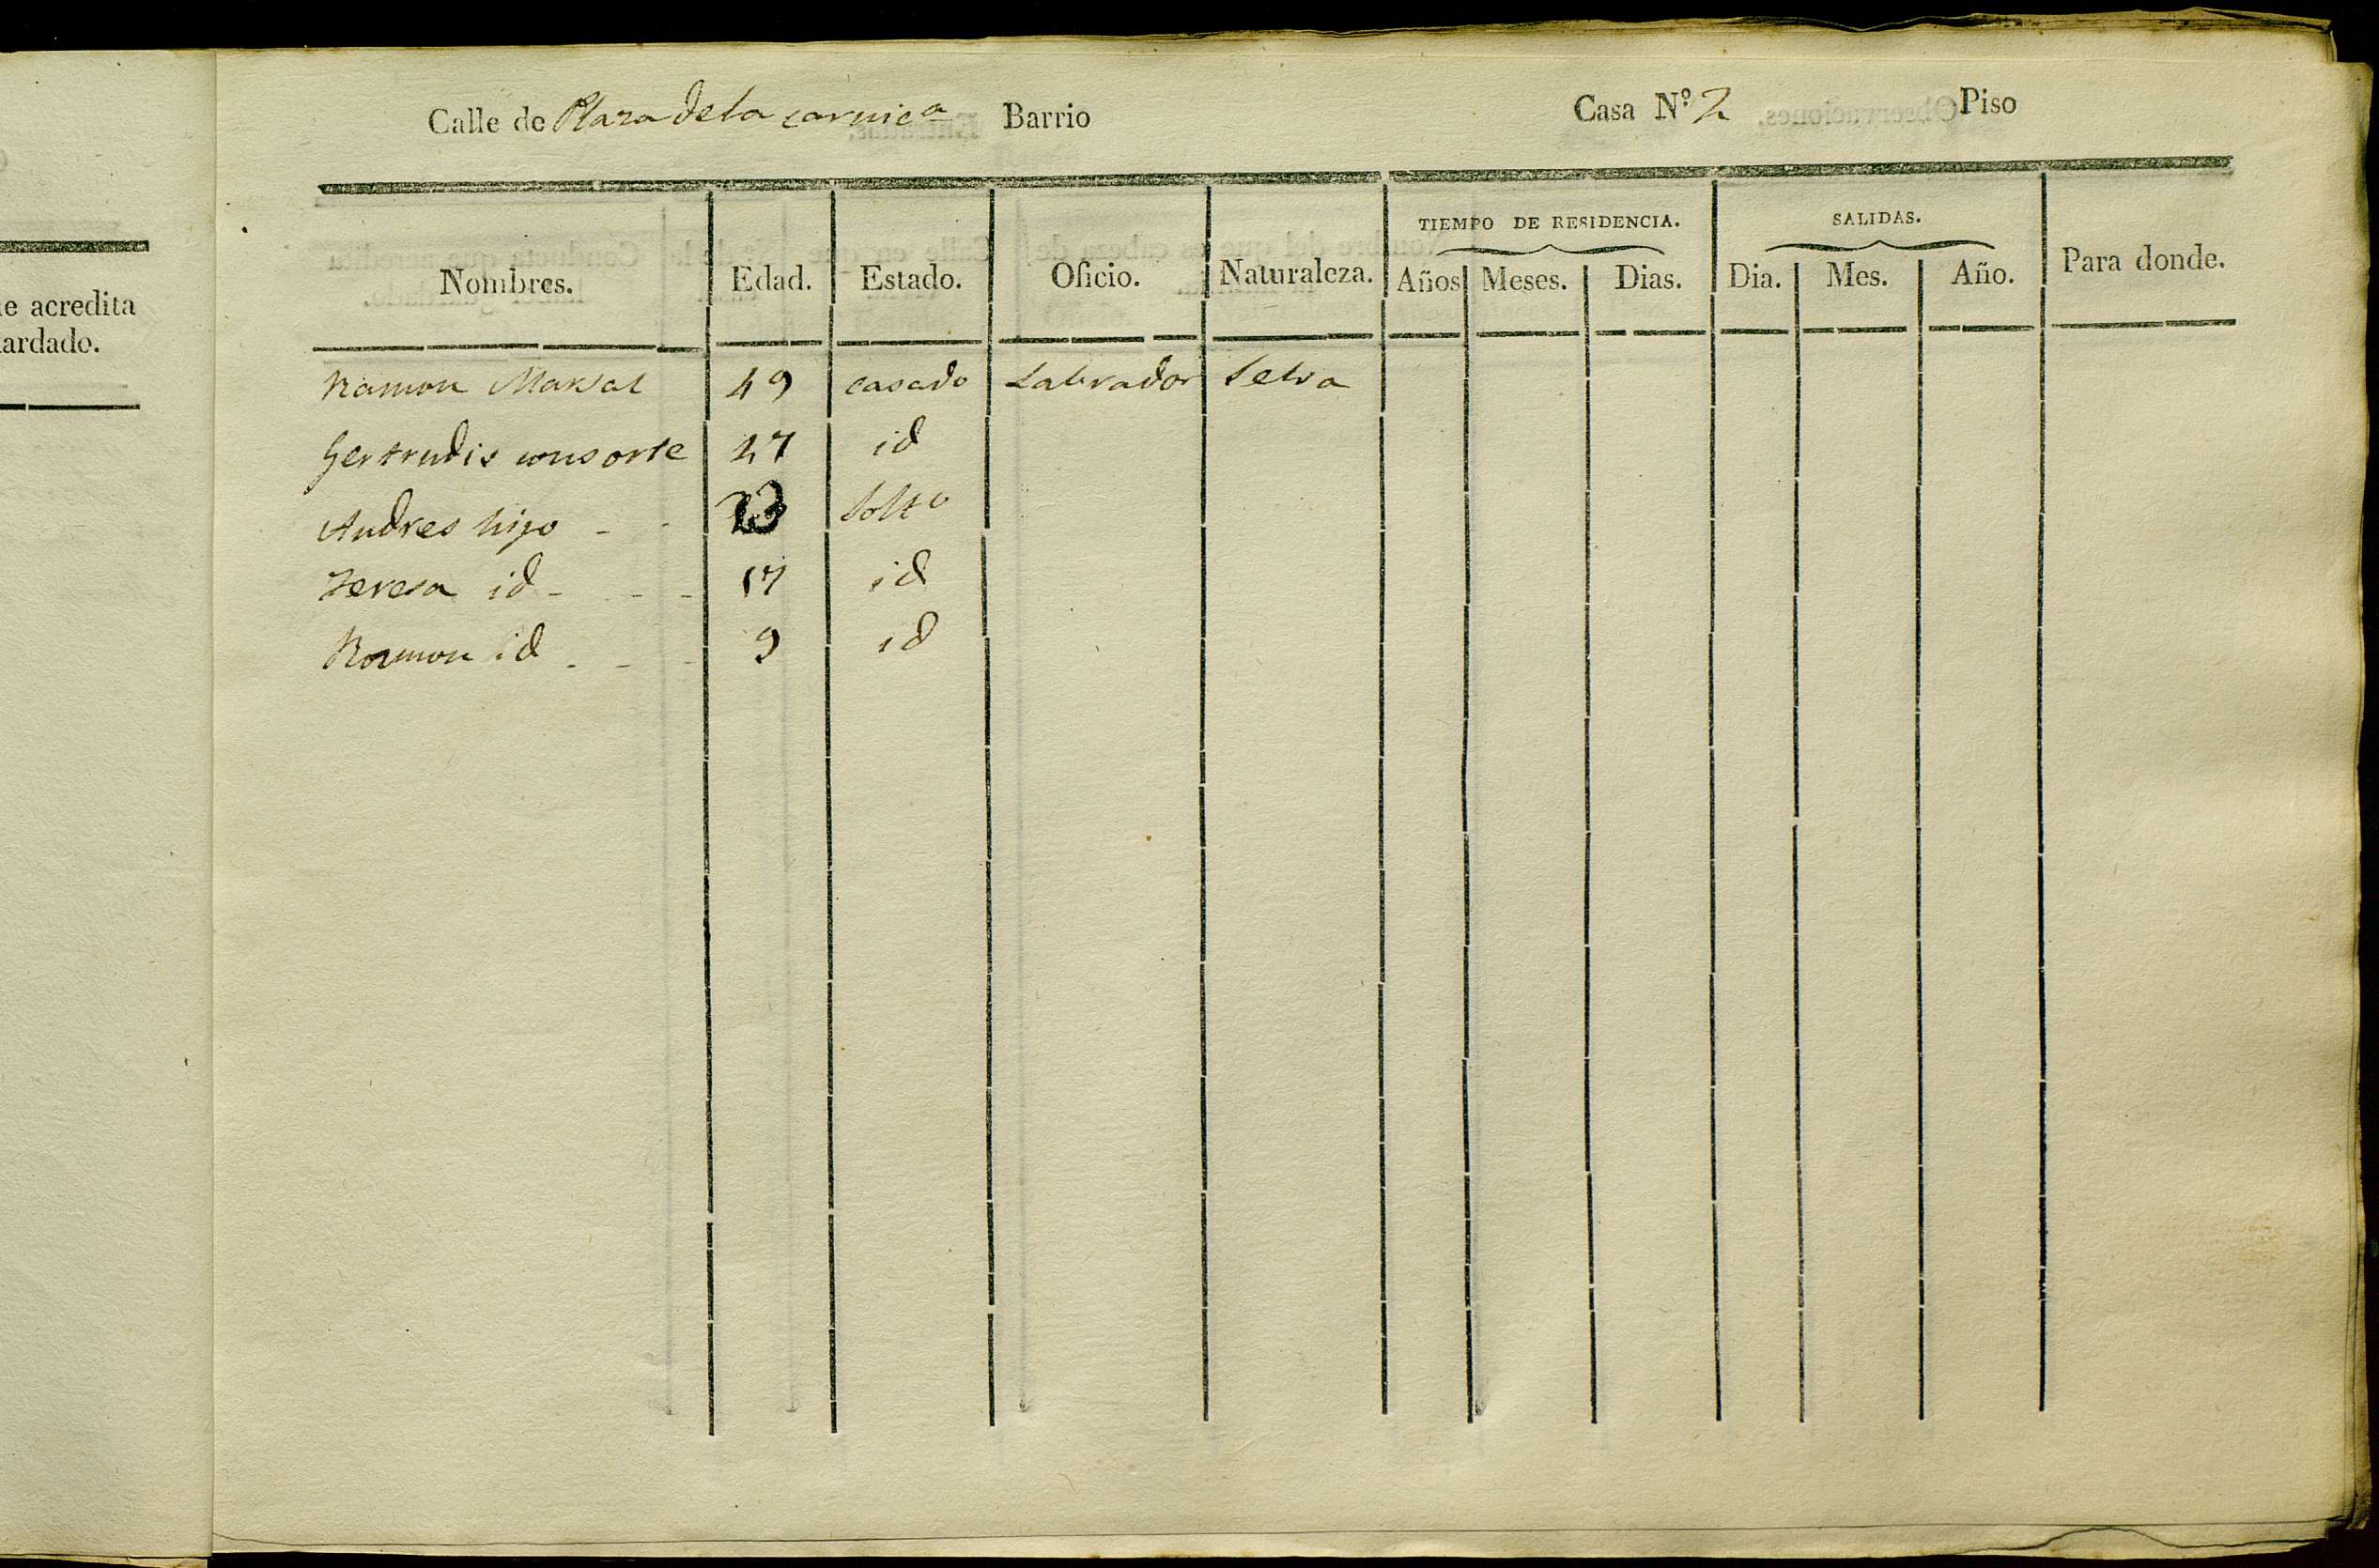 Calle de Plaza de la carnica Barrio Casa N.º 2 Piso
TIEMPO DE RESIDENCIA. SALIDAS.
Nombres. Edad. Estado. Oficio. Naturaleza. Años Meses. Dias. Dia. Mes. Año. Para donde.
Ramon Marsal 49 casado Labrador Selva
Gertrudis consorte 47 id
Andres hijo - - 23 Solto
Teresa id - - - 17 id
Ramon id - - - 9 id
e acredita
ardado.